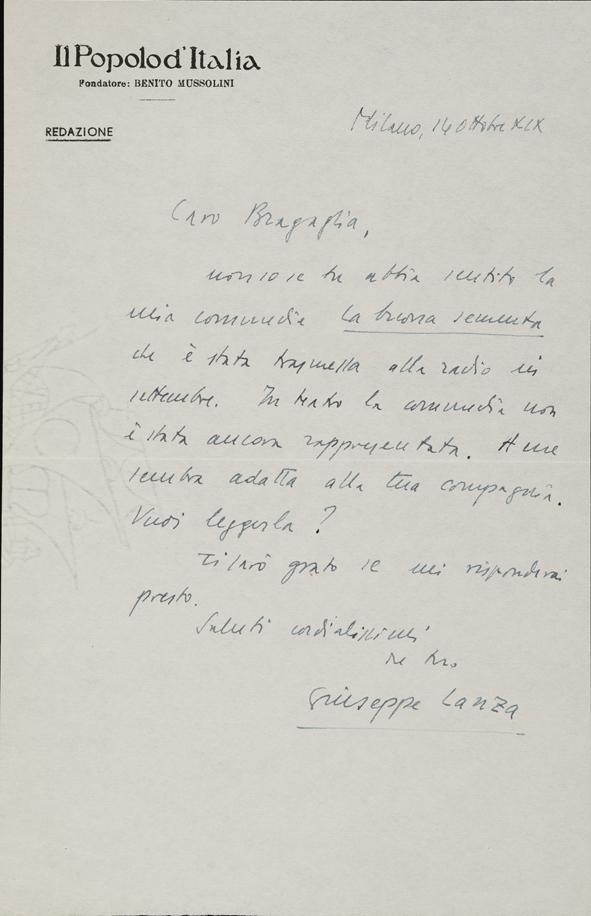 Il Popolo d'Italia
Fondatore: BENITO MUSSOLINI
REDAZIONE
Milano, 14 Ottobre XIX
Caro Bragaglia,
non so se tu abbia sentito la
mia commedia La buona sementa
che è stata trasmessa alla radio in
settembre. In teatro la commedia non
è stata ancora rappresentata. A me
sembra adatta alla tua compagnia.
Vuoi leggerla?
Ti sarò grato se mi risponderai
presto.
Saluti cordialissimi
tuo
Giuseppe Lanza